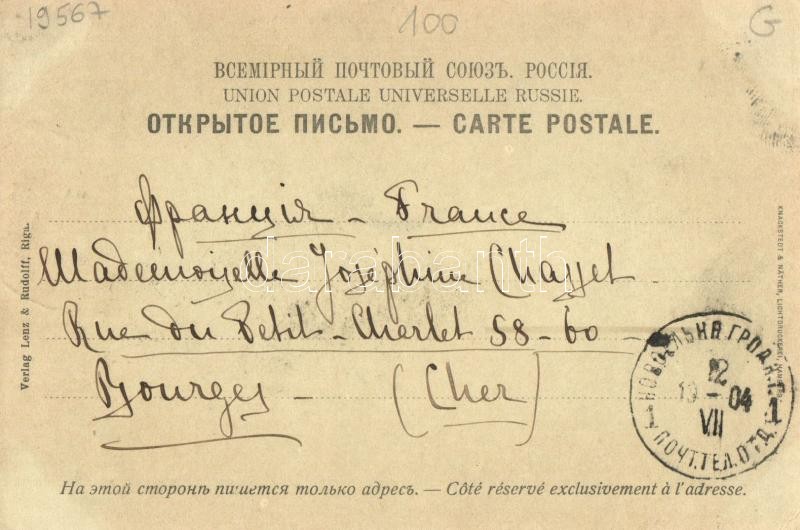 19567
100
G
ВСЕМІРНЫЙ ПОЧТОВЫЙ СОЮЗЪ. РОССІЯ.
UNION POSTALE UNIVERSELLE RUSSIE.
ОТКРЫТОЕ ПИСЬМО. — CARTE POSTALE.
Франція - France
Mademoiselle Joséphine Chasset
Rue du Petit - Cherlet 58 - 60 -
Bourges - (Cher)
Verlag Lenz & Rudolff, Riga.
KNACKSTEDT & NÄTHER, LICHTDRUCKEREI,
darabanth
12
19 - 04
VII
1 ПОЧТ.ТЕЛ.ОТД. 1
На этой сторонѣ пишется только адресъ. — Côté réservé exclusivement à l'adresse.